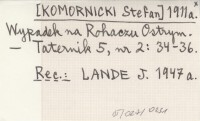 [KOMORNICKI Stefan] 1911a.x
Wypadek na Rohaczu Ostrym.
— Taternik 5, nr 2: 34-36.
Rec.: LANDE J. 1947a.